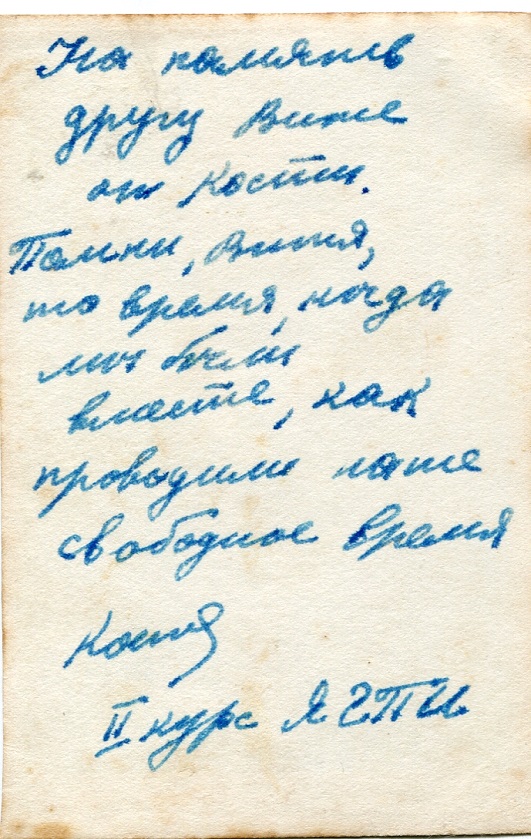 На память
другу Вите
от Кости.
Помни, Витя,
то время, когда
мы были
вместе, как
проводили наше
свободное время
Костя
II курс ЯГПИ